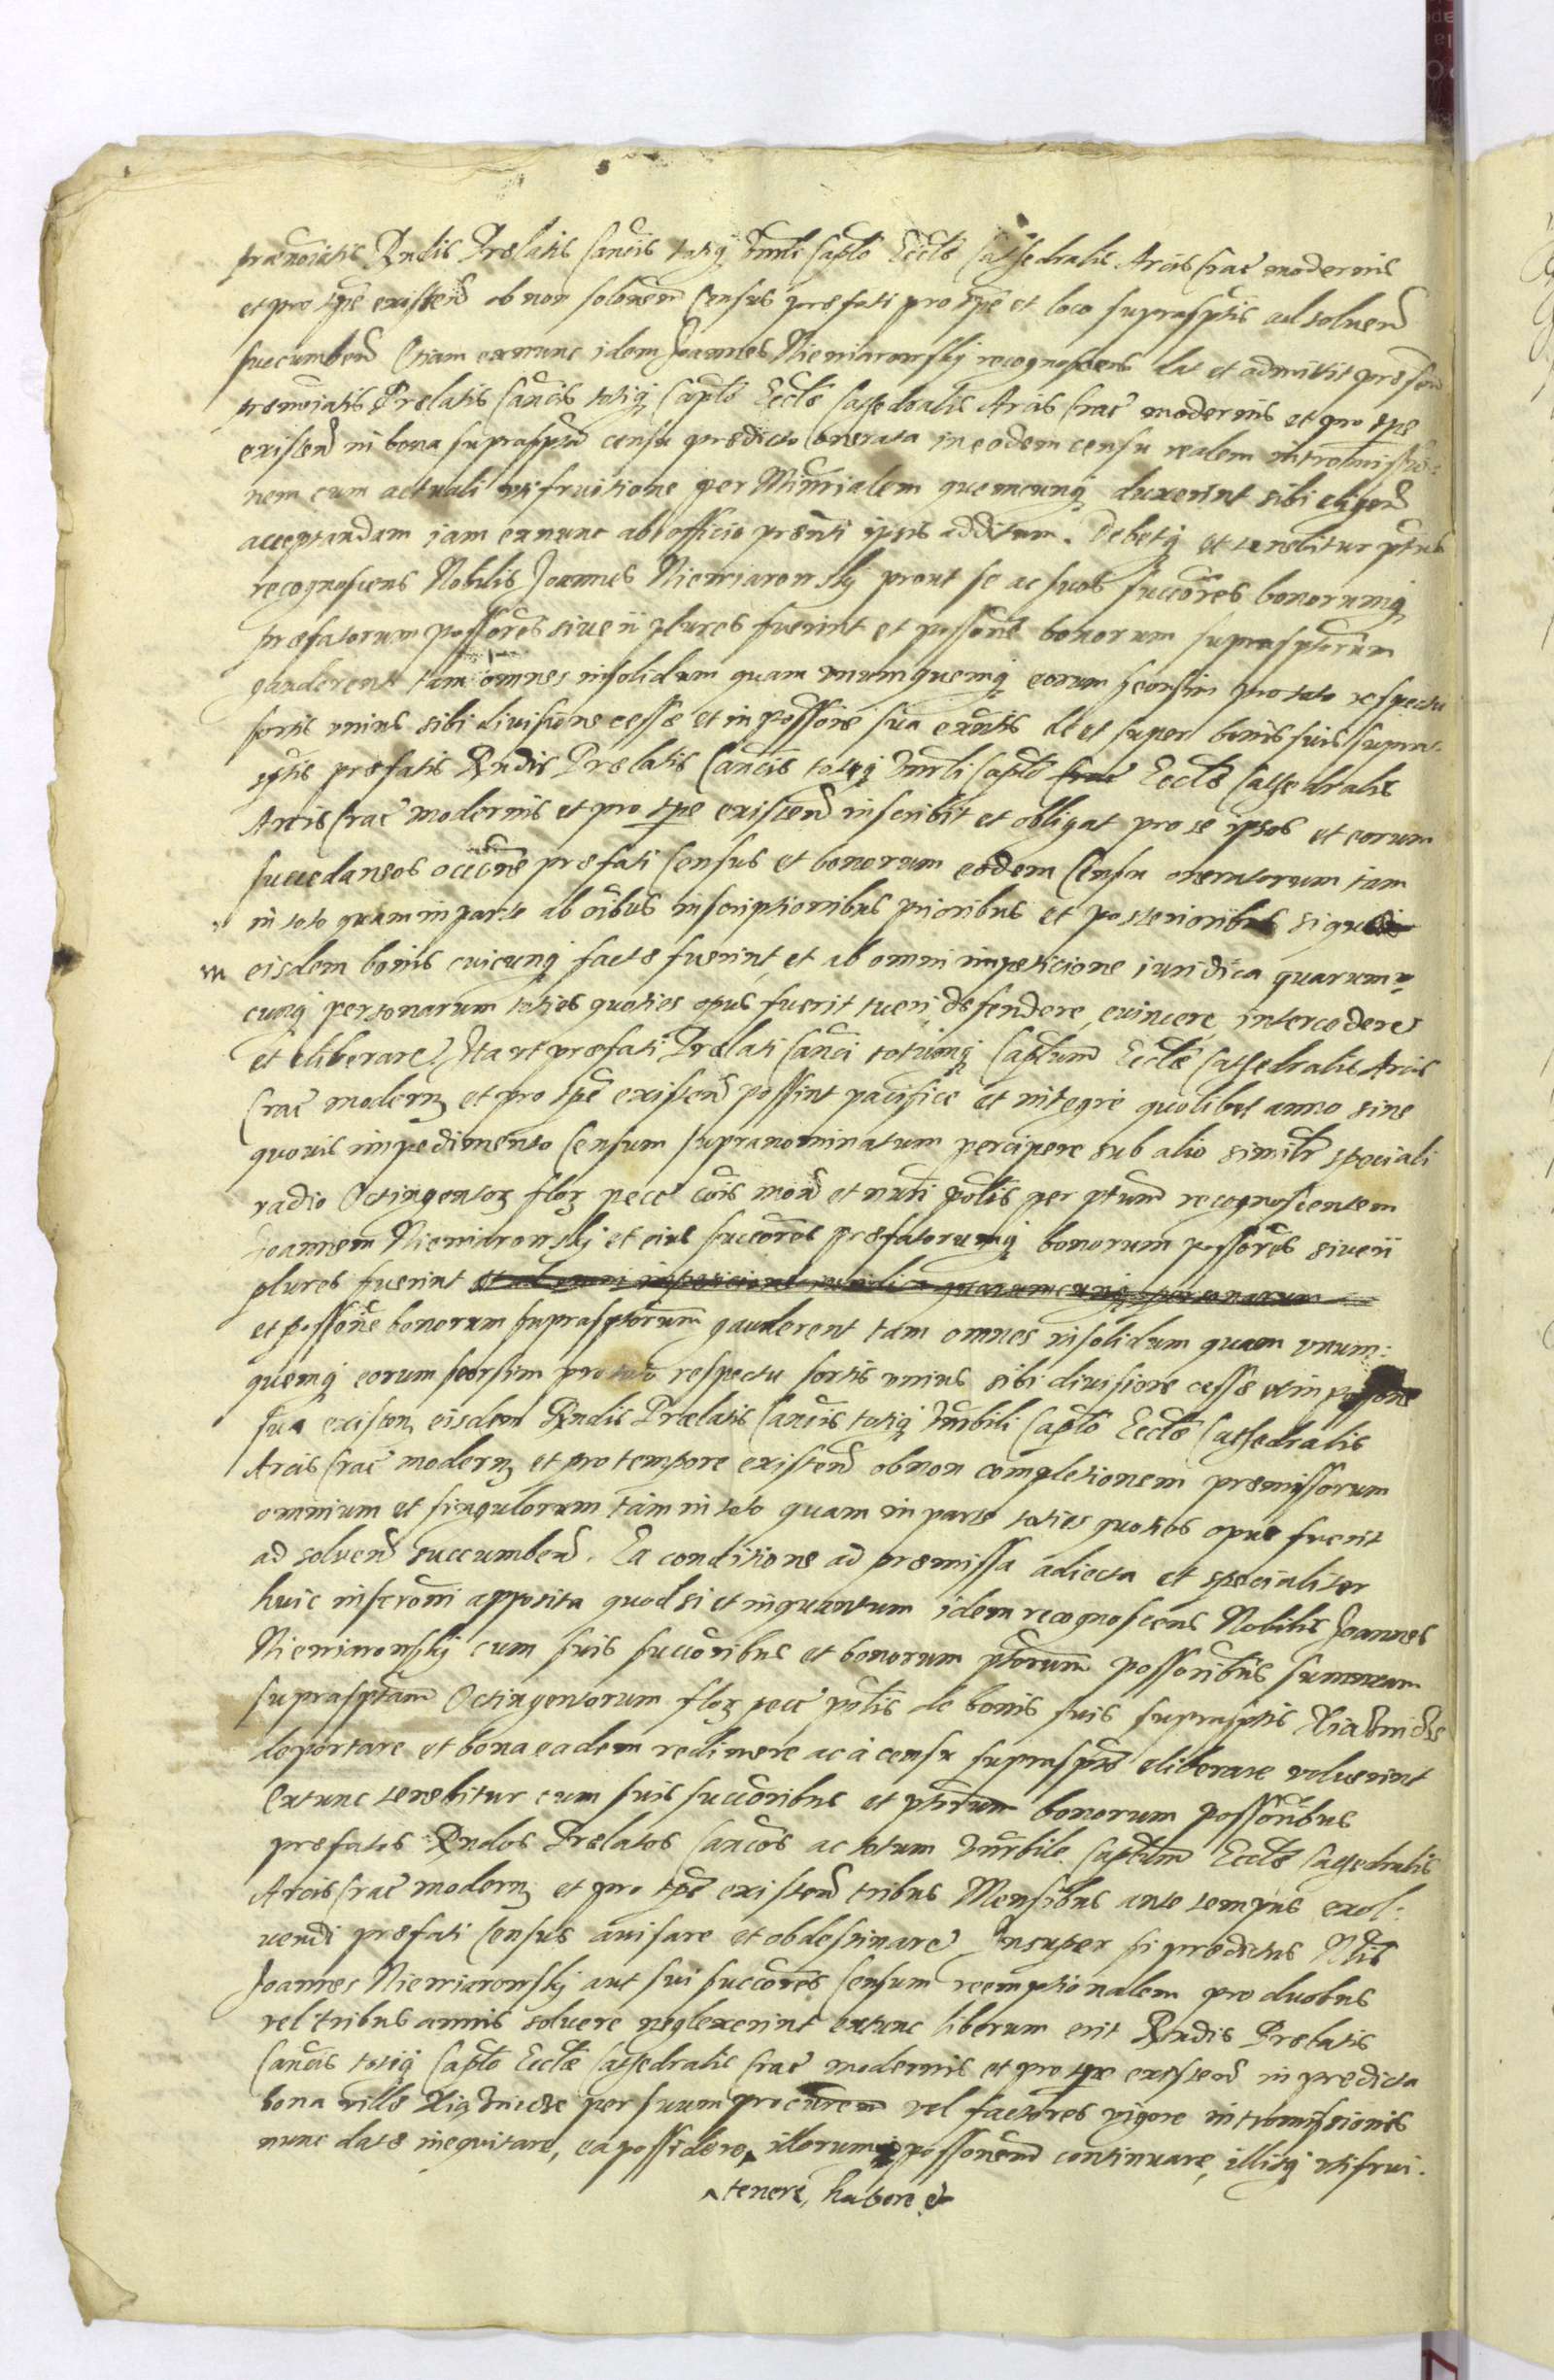 prænoiatis Rndis Prælatis Cancis totiq Vnrli Caplo Eccle Cathedralis Arcis Crac modernis
et pro tpe existen ob non solonem Census præfati pro tpe et loco suprasptis ad solven
succumben Etiam exnunc idem Joannes Niemiarowskj recognoscens dat et admittit præfen
prænoiatis Prælatis Cancis totiq Caplo Eccle Cathedralis Arcis Crac modernis et pro tpe
existen in bona supraspta censu prædicto onerata in eodem censu realem intromissio:
nem cum actuali usifruitione per Minrialem quemcunq duxerint sibi eligen
acceptandam iam exnunc ab officio prænti ipsis additum. Debetq et tenebitur ptus
recognoscens Nobilis Joannes Niemiarowskj prout se ac suos succores bonorumq
præfatorum possores siue ii plures fuerint et possone bonorum supraspторum
gauderent tam omnes insolidum quam unumquemq eorum seorsim pro toto respectu
sortis unius sibi divisione cessæ et in possone sua exntis de et super bonis suis supra-
sptis præfatis Rndis Prælatis Cancis totiq Vnrli Caplo Crac Eccle Cathedralis
Arcis Crac modernis et pro tpe existen inscribit et obligat pro se ipsos et eorum
succedaneos occone præfati Census et bonorum eodem Censu oneratorum tam
in toto quam in parte ab oibus inscriptionibus prioribus et posterioribus siquæ
m eisdem bonis cuicunq factæ fuerint et ab omni impeticione iuridica quarum=
cunq personarum toties quoties opus fuerit tueri defendere, evincere intercedere
et eliberare. Ita ut præfati Prælati Canci totumq Captulum Eccle Cathedralis Arcis
Crac modern et pro tpe existen possint pacifice et integre quolibet anno sine
quovis impedimento Censum supranominatum percipere sub alio similr speciali
vadio Octingentor flor pece cois mon et nuti polis per ptum recognoscentem
Joannem Niemiarowskj et eius succores præfatorumq bonorum possores siue ii
plures fuerint et ab omni impeticione iuridica quarumcunq personarum
et possone bonorum supraspторum gauderent tam omnes insolidum quam unum:
quemq eorum seorsim pro toto respectu sortis unius sibi divisione cessæ et in possone
sua existen eisdem Rndis Prælatis Cancis totiq Vnrbili Caplo Eccle Cathedralis
Arcis Crac modern et pro tempore existen ob non completionem præmissorum
omnium et singulorum tam in toto quam in parte toties quoties opus fuerit
ad solven succumben. Ea conditione ad præmissa adiecta et specialiter
huic inscroni apposita quod si et inquantum idem recognoscens Nobilis Joannes
Niemiarowskj cum suis succoribus et bonorum ptorum possoribus summam
suprasptam Octingentorum flor pecc polis de bonis suis suprasptis
deportare et bona eadem redimere ac a censu supraspto eliberare voluerint
Extunc tenebitur cum suis succoribus et ptorum bonorum possoribus
præfatos Rndos Prælatos Cancos ac totum Vnrbile Captulum Eccle Cathedralis
Arcis Crac modern et pro tpe existen tribus Mensibus ante tempus exol:
uendi præfati Census avisare et obdestinare. Insuper si prædictus Nlis
Joannes Niemiarowskj aut sui succores Censum reemptionalem pro duobus
vel tribus annis solvere neglexerint extunc liberum erit Rndis Prælatis
Cancis totiq Caplo Eccle Cathedralis Crac modernis et pro tpe existen in prædicta
bona villæ per suum procurem vel factores vigore intromissionis
nunc datæ inequitare, ea possidere, illorumq possonem continuare, illisq utifrui.
^ tenere, habere et